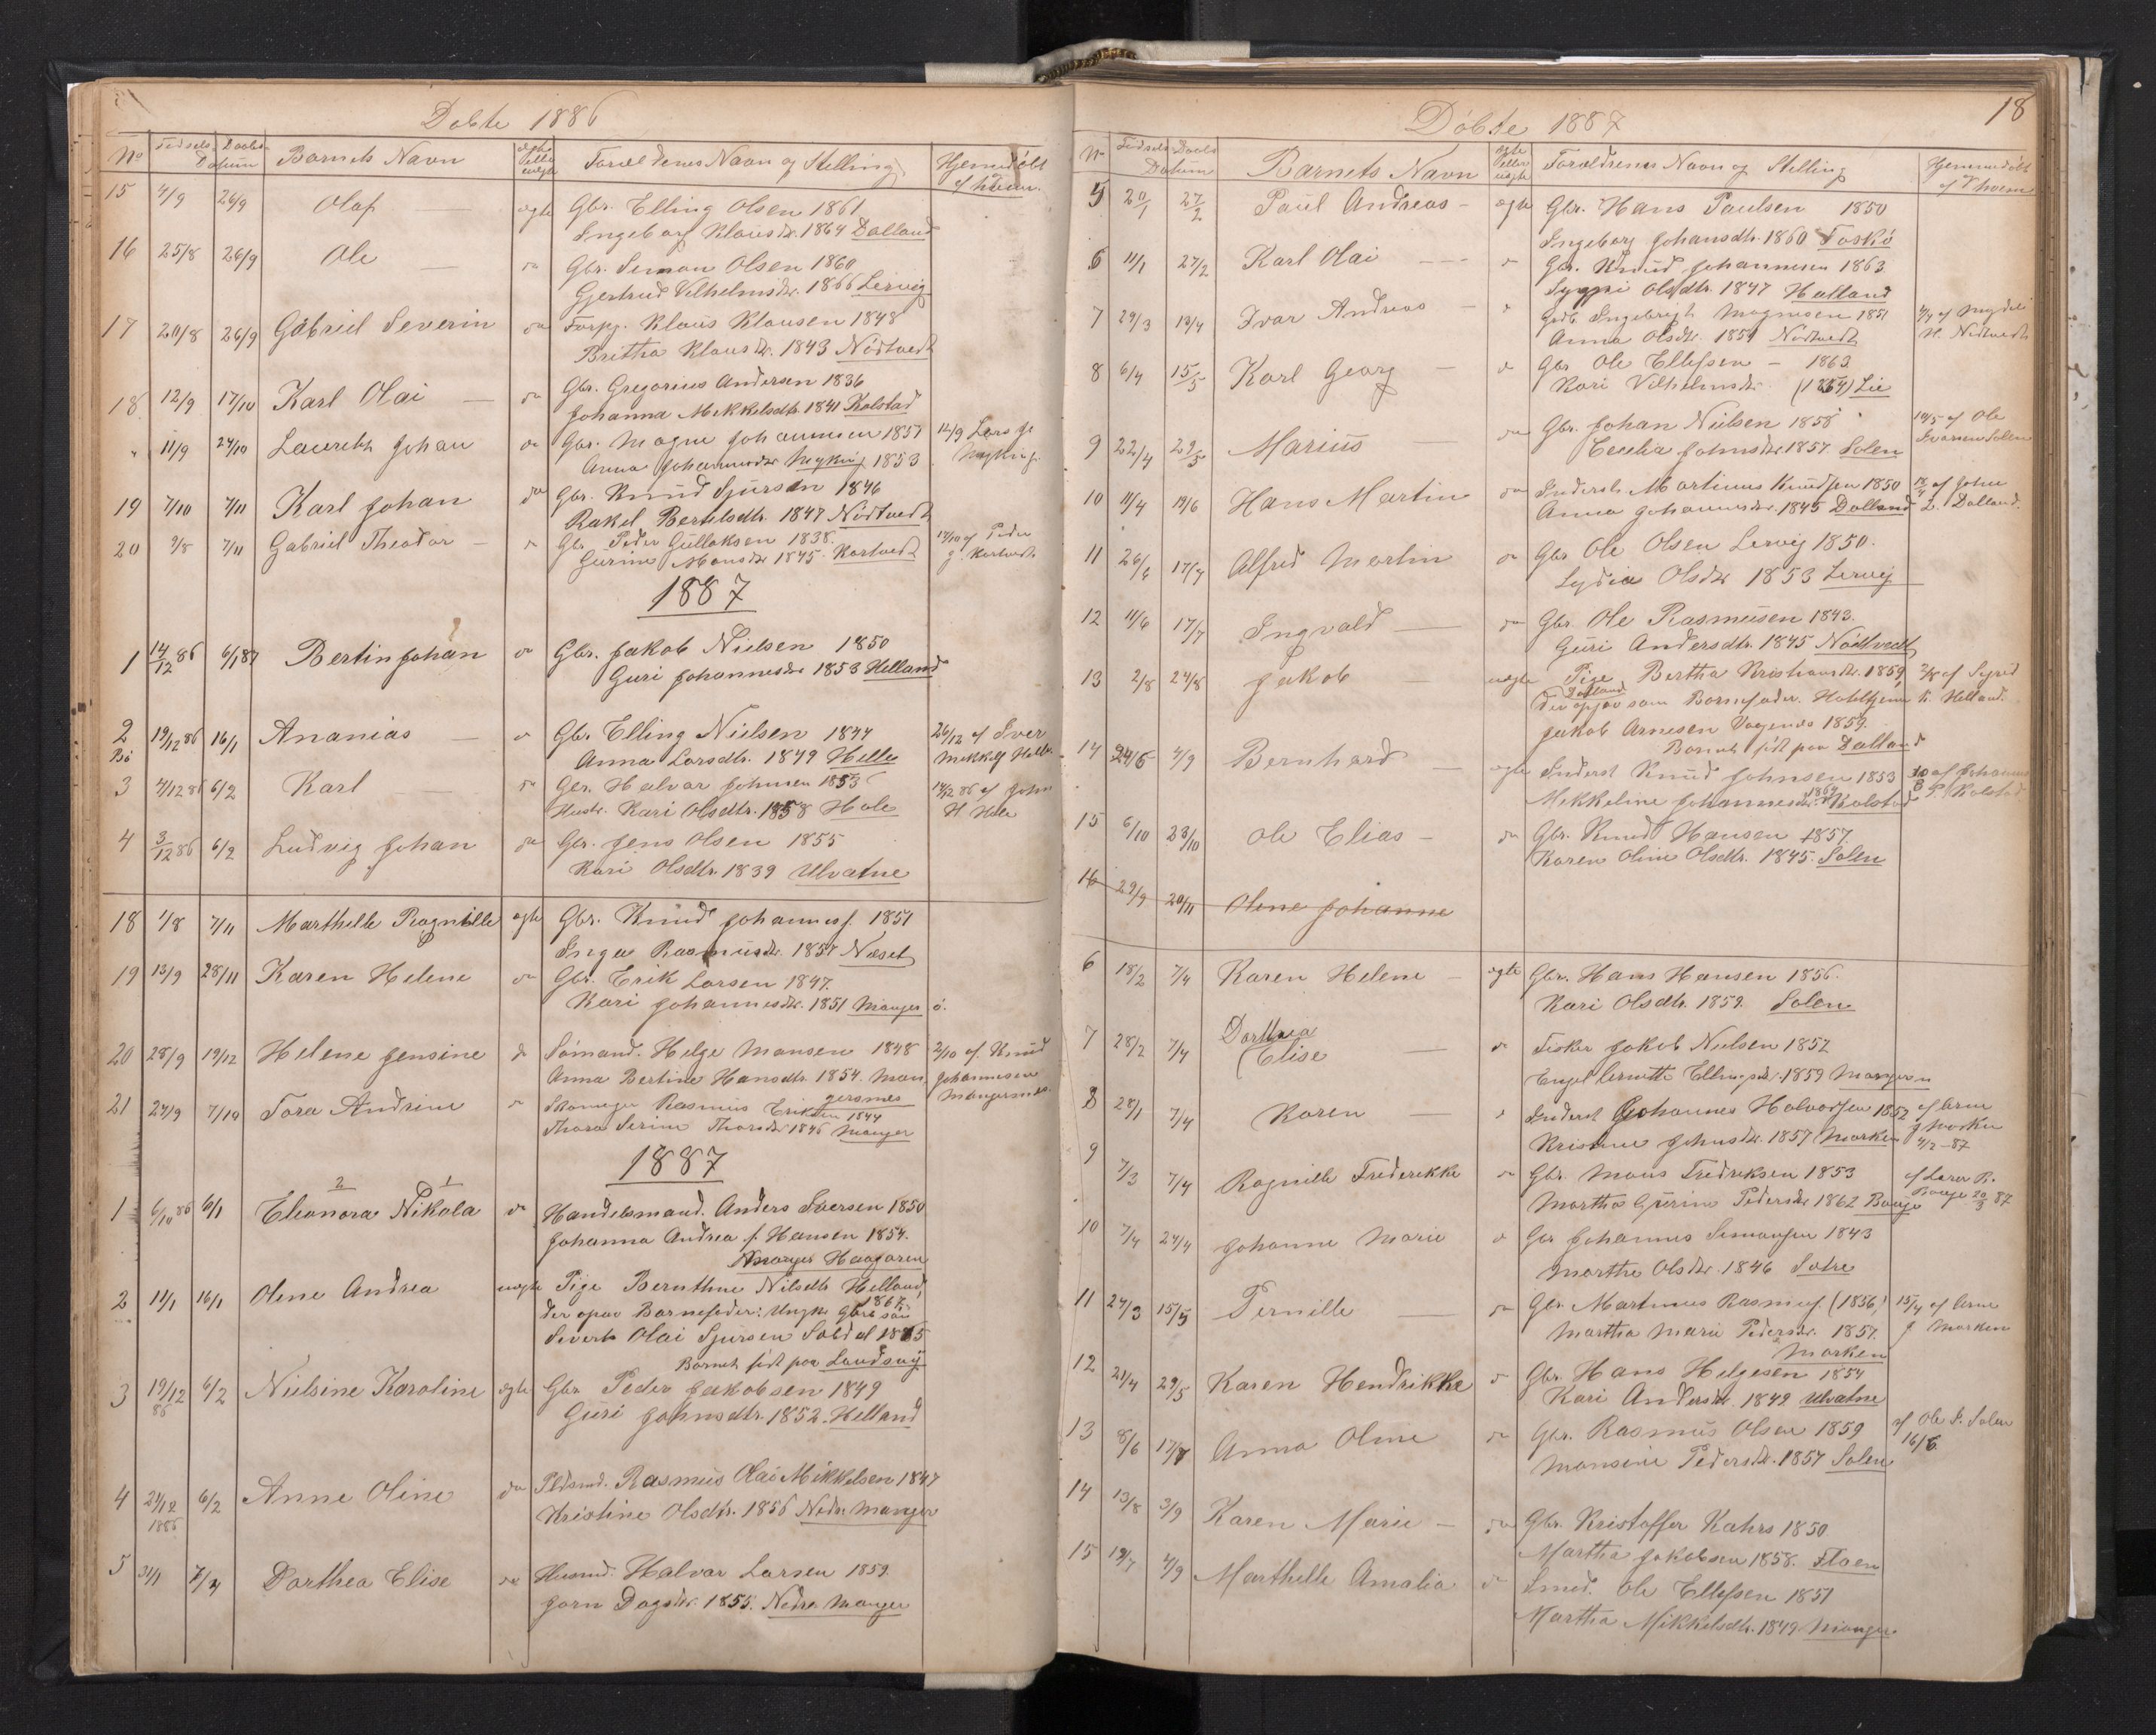 Døbte 1886
No Fødsels Daabs Datum Barnets Navn ægte eller uægte Forældrenes Navn og Stilling Hjemmedøbt af hvem.
15 4/9 26/9 Olaf — ægte Gbr. Elling Olsen 1861
Ingeborg Klausdr. 1864 Dalland
16 25/8 26/9 Ole — do Gbr. Simon Olsen 1860
Gjertrud Vilhelmsdr. 1866 Lervig
17 20/8 26/9 Gabriel Severin do Forpg. Klaus Klausen 1848
Britha Klausdr. 1843 Nødtvedt
18 12/9 17/10 Karl Olai — do Gbr. Gregorius Andersen 1836
Johanna Mikkelsdtr. 1841 Kolstad
" 11/9 24/10 Lauritz Johan do Gbr. Magne Johannesen 1851 12/9 Lars J.
Anna Johannesdr Myking 1853 Myking
19 7/10 7/11 Karl Johan do Gbr. Knud Sjursen 1846
Rakel Bertelsdtr. 1847 Nødtvedt
20 9/8 7/11 Gabriel Theodor — do Gbr. Peder Gullaksen 1838. 17/10 af Peder
Gurine Monsdr 1845. Kartvedt J. Kartvedt
1887
1 14/12 86 6/1 87 Bertin Johan do Gbr. Jakob Nielsen 1850
Guri Johannesdr 1853 Helland
2 19/12 86 16/1 Ananias — do Gbr. Elling Nielsen 1844 26/12 af Iver
Bø Anna Larsdtr. 1849 Helle Mikkels Helle
3 4/12 86 6/2 Karl — do Gbr. Halvar Johnsen 1853 14/12 86 af John
Hustr. Kari Olsdtr. 1858 Hole H. Hole
4 3/12 86 6/2 Ludvig Johan do Gbr. Jens Olsen 1855
Kari Olsdtr. 1839 Ulvatne
18 1/8 7/11 Marthelle Ragnille ægte Gbr. Knud Johannesf. 1851
Inga Rasmusdr. 1857 Næset
19 13/9 28/11 Karen Helene do Gbr. Erik Larsen 1847.
Kari Johannesdr. 1851 Manger ø.
20 28/9 19/12 Helene Jensine do Sømand. Helge Monsen 1848 2/10 af. Knud
Anna Bertine Hansdtr. 1854. Man- Johannesen
gersnes Mangersnes
21 24/9 7/10 Tora Andrine do Skomager Rasmus Eriksen 1844
Thora Serine Thorsdr 1846 Manger
1887
1 6/10 86 6/1 Eleonora Nikola do Handelsmand. Anders Iversen 1850
2 1
Johanna Andrea f. Hansen 1854.
Manger Haagaren
2 11/1 16/1 Oline Andrea uægte Pige Bernthine Nilsdtr Helland, 1867.
der opgav Barnefader: Ungk. Gbrs søn
Sivert Olai Sjursen Soldal 1865
Barnet født paa Landsvig
3 19/12 86 6/2 Nielsine Karoline ægte Gbr Peder Jakobsen 1849
Guri Johnsdtr. 1852. Helland
4 21/12 1886 6/2 Anne Oline do Pldsmd. Rasmus Olai Mikkelsen 1847
Kristine Olsdtr. 1856 Nedre Manger
5 31/1 7/4 Dorthea Elise do Husmd. Halvar Larsen 1859.
Jorn Dagsdr. 1855. Nedre Manger
18
Døbte 1887
No Fødsels Daabs Datum Barnets Navn ægte eller uægte Forældrenes Navn og Stilling Hjemmedøbt af hvem
5 20/1 27/2 Paul Andreas — ægte Gbr. Hans Paulsen 1850
Ingeborg Johansdtr. 1860 Toskø
6 11/1 27/2 Karl Olai — do Gbr. Knud Johannesen 1863
Olsdtr. 1847 Halland
7 29/3 13/4 Ivar Andreas — do Grdb. Ingebrigt Magnusen 1851
Anna Olsdr. 1854 Nødtvedt N. Nødtvedt
8 6/4 15/5 Karl Georg — do Gbr Ole Ellefsen — 1863
Kari Vilhelmsdr. (1864) Lie
9 22/4 29/5 Marius do Gbr. Johan Nielsen 1858 10/5 af Ole
Cecelia Johnsdr. 1857. Solen Ivarsen Solen
10 11/4 19/6 Hans Martin do Inderst. Martinus Knudsen 1850 af John
Anna Johannesdr. 1845 Dalland L. Dalland.
11 26/6 17/7 Alfred Martin do Gbr Ole Olsen Lervig 1850.
Lydia Olsdr 1853 Lervig
12 11/6 17/7 Ingvald — do Gbr. Ole Rasmusen 1843.
Guri Andersdtr. 1845 Nødtvedt
13 2/8 24/8 Jakob — uægte Pige Bertha Kristiansdr. 1859, 2/8 af Sigrid
Dalland
der opgav som Barnefader. K. Helland.
Jakob Arnesen Vaagenes 1859.
Barnet født paa Dalland
14 24/6 4/9 Bernhard — ægte Inderst Knud Johnsen 1853 af Johannes
Mikkeline Johannesdr. 1869 Kolstad P. Kolstad
15 6/10 23/10 Ole Elias — do Gbr. Knud Hansen 1857.
Karen Oline Olsdtr. 1845. Solen
16 29/9 20/11 Oline Johanne
6 18/2 7/4 Karen Helene — ægte Gbr. Hans Hansen 1856.
Kari Olsdtr. 1859. Solen
7 28/2 7/4 Dorthea
Elise — do Fisker Jakob Nielsen 1852
Engel Ellingsdr. 1859 Manger
8 28/1 7/4 Karen — do Inderst Johannes Halvorsen 1852 af Arne
Kristine Johnsdr. 1857 Marken J Marken
4/2-87
9 7/3 7/4 Ragnille Frederikke do Gbr. Mons Fredriksen 1853 af Lærer R.
Martha Gurine Pedersdr 1862 Bauge Bauge 20/3 87
10 7/4 24/4 Johanne Marie do Gbr Johannes Simonsen 1843
Martha Olsdr. 1846 Sotre
11 24/3 15/5 Pernille — do Gbr. Martinus Rasmusf. (1856) 15/4 af Arne
Martha Marie Pedersdr. 1857. J Marken
Marken
12 21/4 29/5 Karen Hendrikke do Gbr. Hans Helgesen 1854
Kari Andersdr. 1849 Ulvatne
13 8/6 17/7 Anna Oline do Gbr. Rasmus Olsen 1859 af Ole S. Solen
Monsine Pedersdr. 1857 Solen 16/6
14 13/8 3/9 Karen Marie — do Gbr. Kristoffer Kahrs 1850
Martha Jakobsen 1858. Floen
15 19/7 4/9 Marthelle Amalia do Smed. Ole Ellefsen 1851
Martha Mikkelsdtr. 1849 Manger